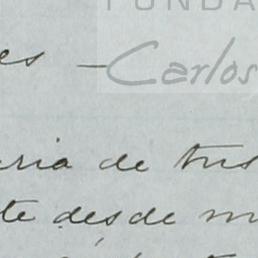 FUNDA
es — Carlos
ria de tus
te desde m